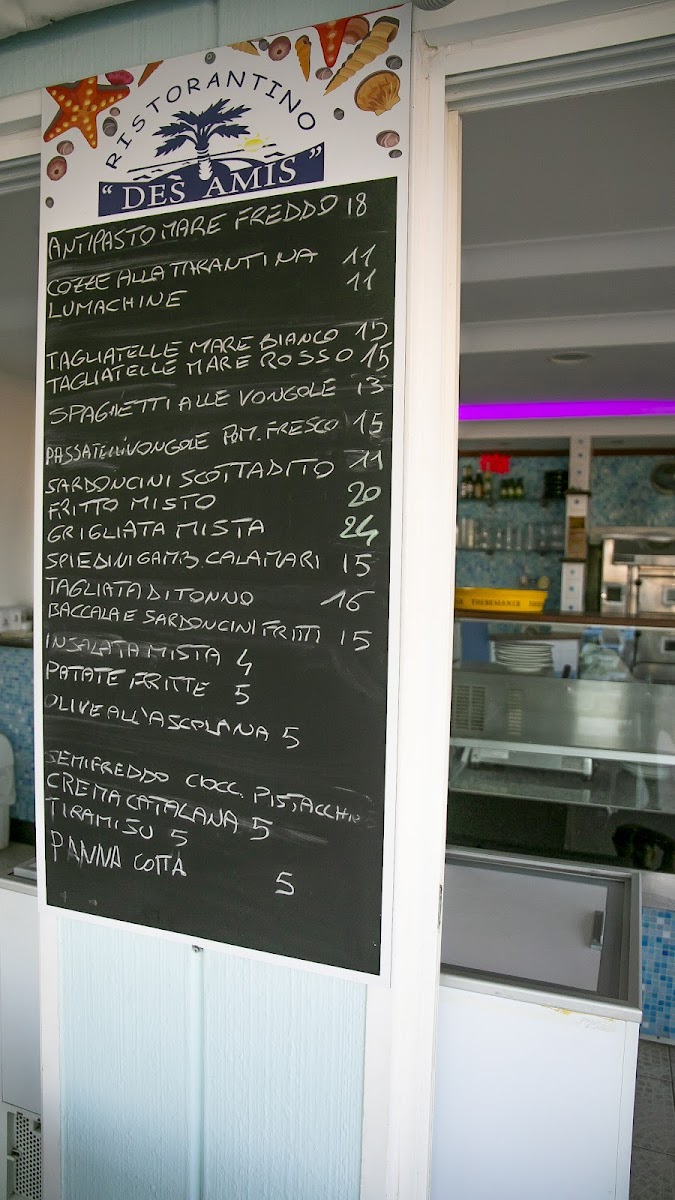 RISTORANTINO
"DES AMIS"
ANTIPASTO MARE FREDDO 18
COZZE ALLA TARANTINA 11
LUMACHINE 11
TAGLIATELLE MARE BIANCO 15
TAGLIATELLE MARE ROSSO 15
SPAGHETTI ALLE VONGOLE 13
PASSATELLI VONGOLE POM. FRESCO 15
SARDONCINI SCOTTADITO 11
FRITTO MISTO 20
GRIGLIATA MISTA 24
SPIEDINI GAMB. CALAMARI 15
TAGLIATA DI TONNO 16
BACCALA E SARDONCINI FRITTI 15
INSALATA MISTA 4
PATATE FRITTE 5
OLIVE ALL'ASCOLANA 5
SEMIFREDDO CIOCC. PISTACCHIO
CREMA CATALANA 5
TIRAMISU 5
PANNA COTTA 5